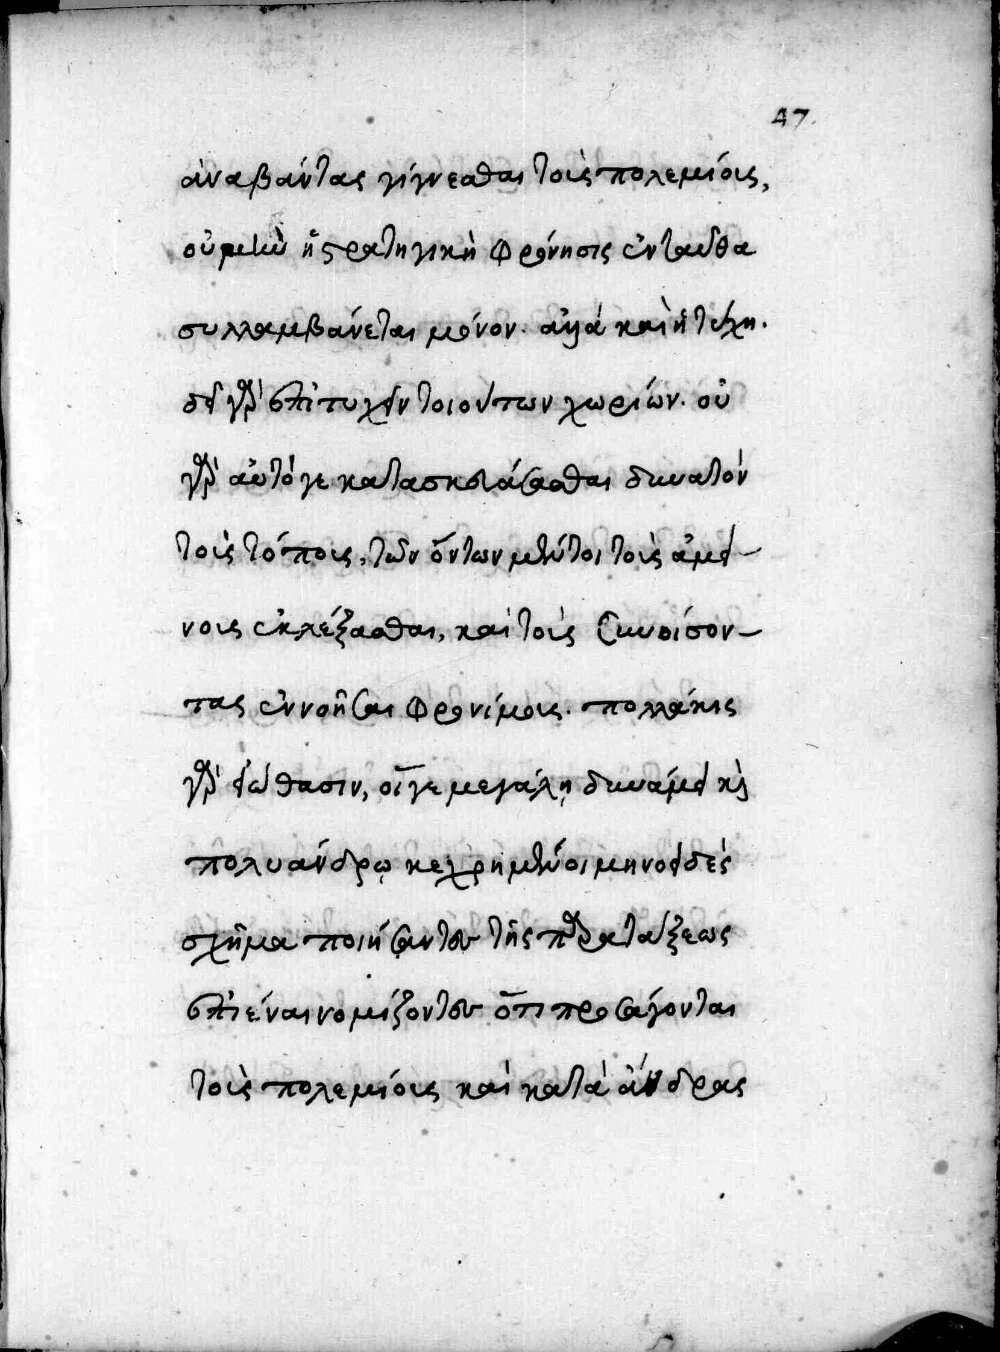 47.
ἀναβάντας γίγνεσθαι τοῖς πολεμίοις,
οὐ μὴν ἡ στρατηγικὴ φρόνησις ἐνταῦθα
συλλαμβάνεται μόνον. ἀλλὰ καὶ ἡ τύχη.
δεῖ γὰρ ἐπιτυχεῖν τοιούτων χωρίων. οὐ
γὰρ αὐτό γε κατασκευάσασθαι δυνατὸν
τοῖς τόποις, τῶν ὄντων μέντοι τοὺς ἀμεί-
νοις ἐκλέξασθαι, καὶ τοὺς συνοίσον-
τας ἐννοῆσαι φρονίμοις. πολλάκις
γὰρ εἰώθασιν, οἵ γε μεγάλῃ δυνάμει κὶ
πολυάνδρῳ κεχρημένοι μηνοειδὲς
σχῆμα ποιήσαντες τῆς παρατάξεως
ἐπιέναι νομίζοντες ὅτι προσάγονται
τοὺς πολεμίοις καὶ κατὰ ἄνδρας